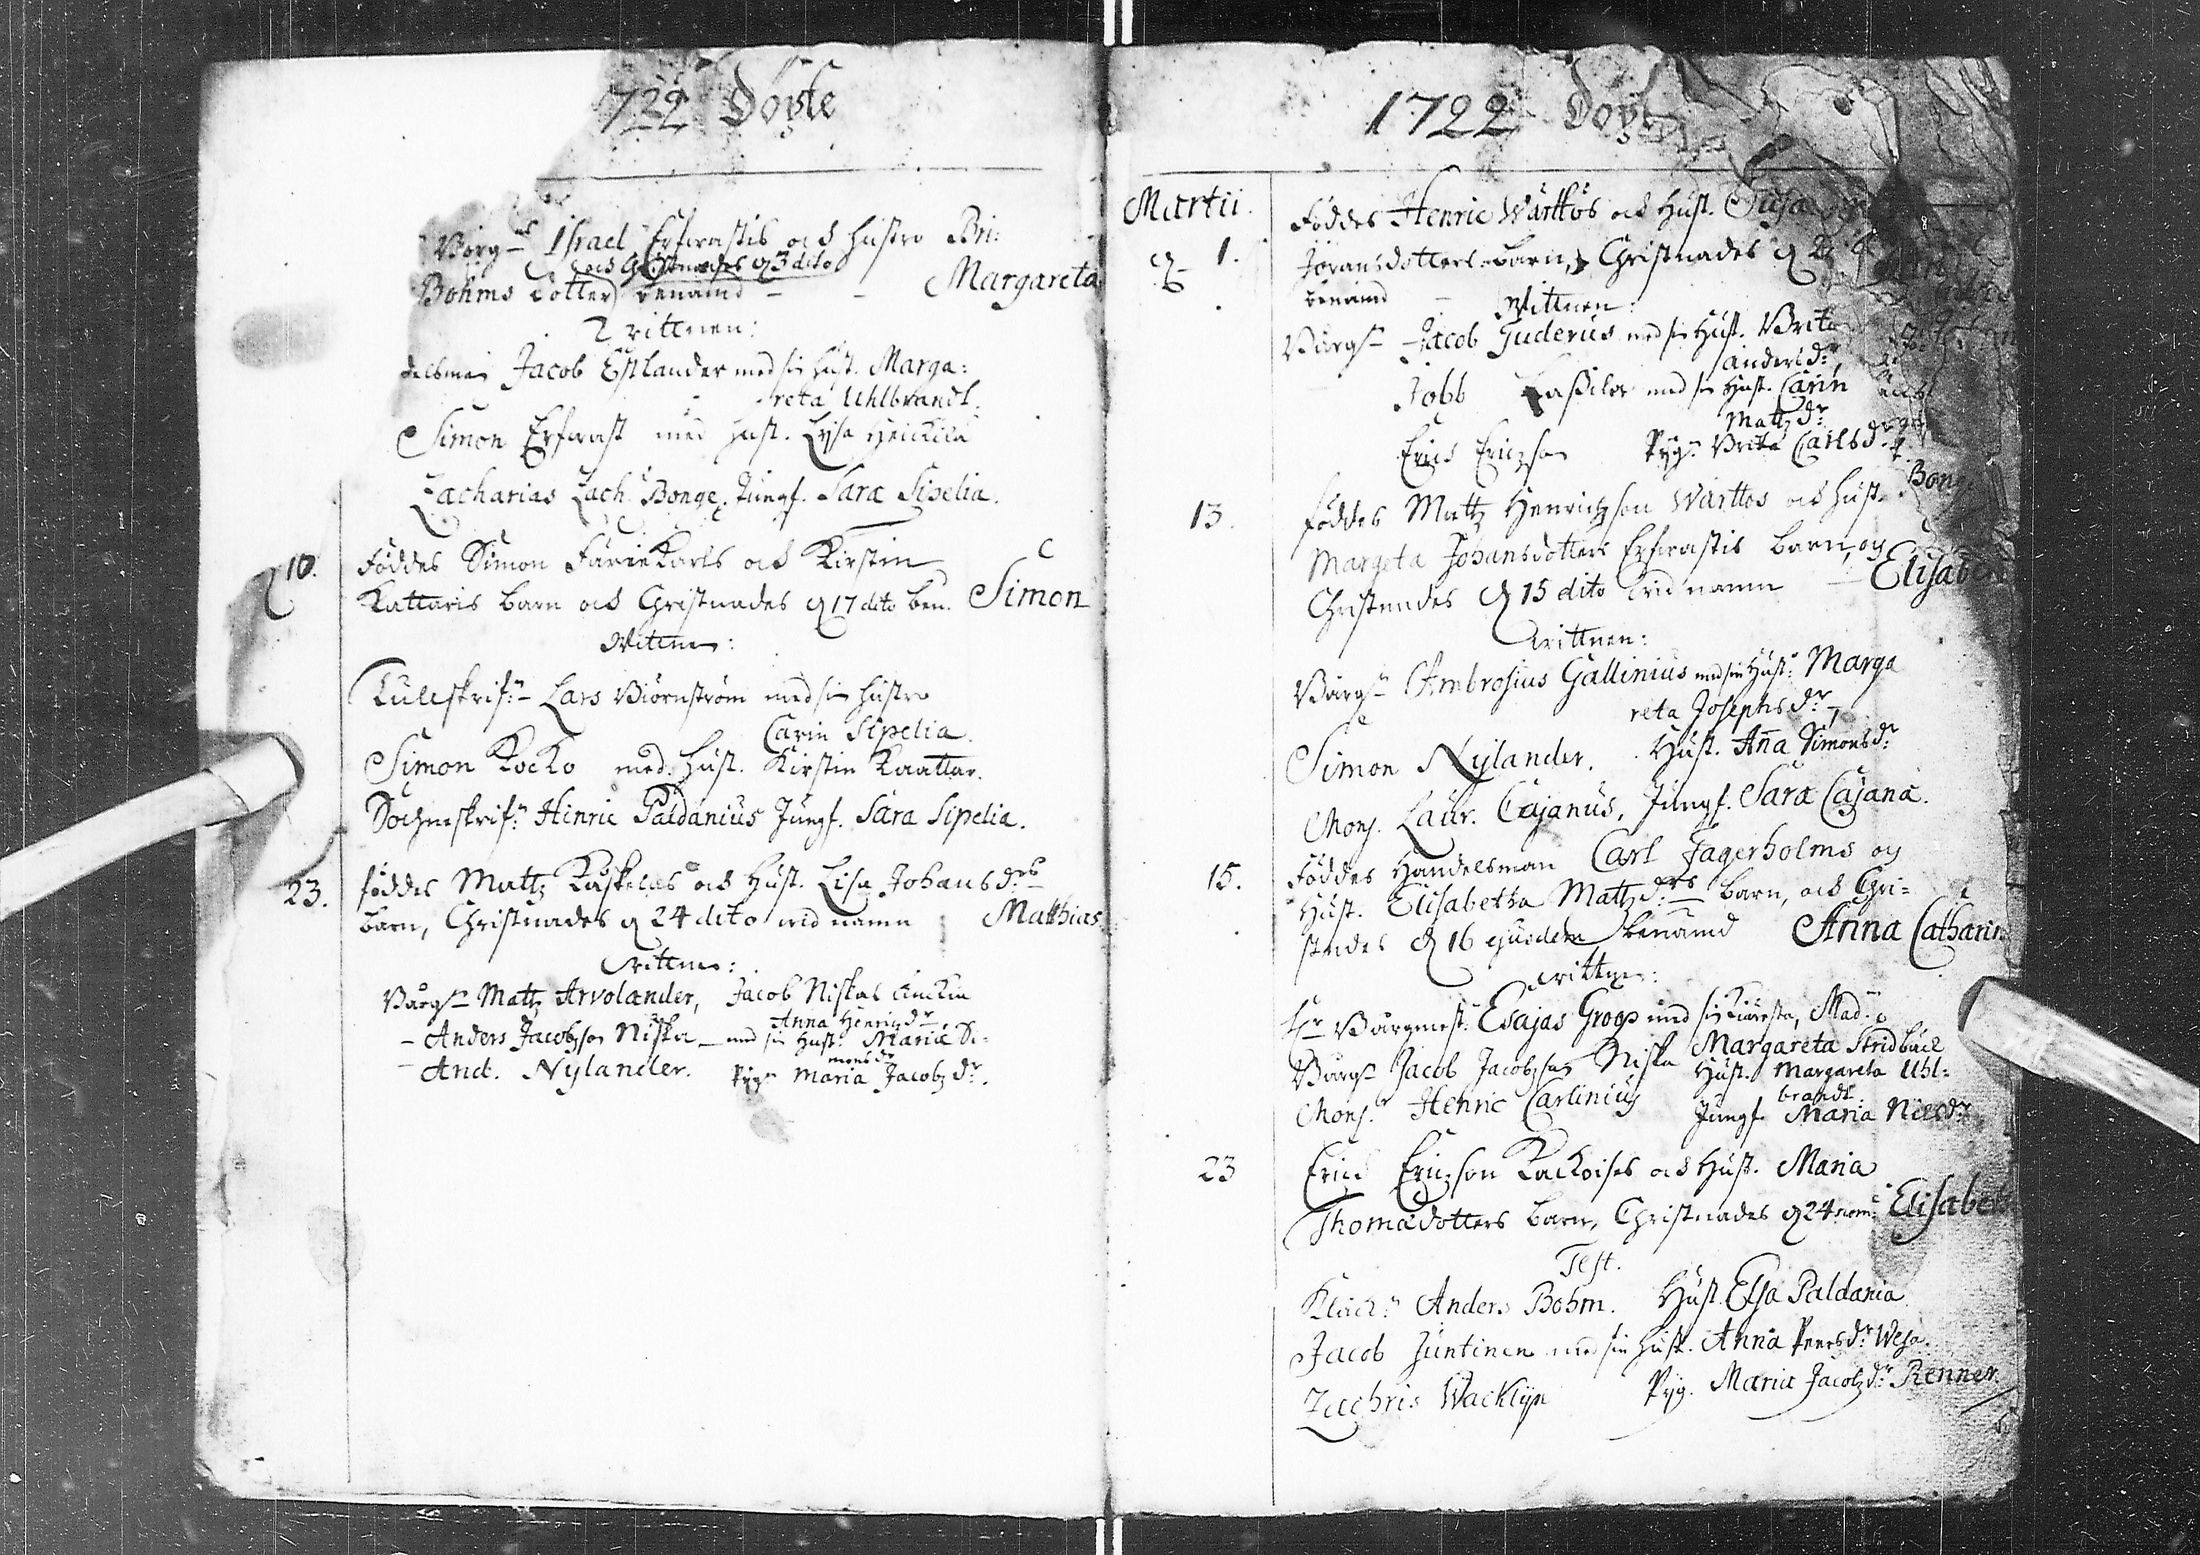 722 Döpte
Borg:ns Israel Erfwastis och hustro Bri:
och Christnades d 3 dito
Bohms dotter benämd - - Margareta
Wittnen:
delsman Jacob Estlander med sin hust. Marga:
reta Uhlbrandt.
Simon Erfwast med hust. Lisa Heickilä
Zacharias Zach: Bonge, Jungf. Sara Sipelia.
10. Föddes Simon Färiekarls och Kirstin
Kattaris barn och Christnades d 17 dito ben. Simon
Wittne:
Tullskrif:n Lars Biörnström med sin hustro
Carin Sipelia.
Simon Kocko med hust. Kirstin Kaattar.
Sochneskrif:n Hinric Paldanius Jungf. Sara Sipelia.
23. föddes Mattz Käskelas och Hust. Lisa Johansd:rs
barn, Christnades d 24 dito wid namn Matthias
Wittne:
Borg:n Mattz Arvolander, Jacob Niskas änckia
Anna Henricsd:r
- Anders Jacobzson Niska - med sin Hust: Maria Si-
monsdr
- And. Nylander. Pyg:n Maria Jacobzd:r.
1722 Döpt
Martii. Föddes Henric Wärttös och Hust.
d 1. Jöransdotters barn, Christnades d
benämd - Wittnen:
Borg:n Jacob Juderus med sin Hust. Brita
andersd:r
Jobb med sin Hust. Carin
Mattzd:r
Erich Ericzson Pyg:n Brita Carlsd:r
13. föddes Mattz Henrichzson Wärttös och hust.
Margeta Johansdotters Erfwastis barn, og
Christnades d 15 dito wid namn - Elisabet
Wittnen:
Borg:n Ambrosius Gallinius med sin Hust: Marga
reta Josephsd:r
Simon Nylander. Hust. Anna Simonsd:r
Mons. Laur. Cajanus, Jungf. Sara Cajana.
15. Föddes Handelsman Carl Jägerholms og
Hust. Elisabetha Mattzd:rs barn, och Chri=
stnades d 16 ejusdem benämd Anna Catharin
Wittne:
H:r Borgmest: Esajas Groop med sin Kiäresta, Mad:
Margareta Stridbäck
Borg:n Jacob Jacobzson Niska Hust. Margareta Uhl=
brandt
Mons:r Henric Carlinius Jungf. Maria Nilsd:r
23 Erich Ericzson Kackoises och Hust. Maria
Thomædotters barn, Christnades d 24 nom: Elisabet
Test.
Klock:n Anders Bohm. Hust. Elsa Paldania
Jacob Juntinen med sin Hust. Anna Peersd:r Wesa.
Zachris Wacklyn Pyg. Maria Jacobzd:r Renner